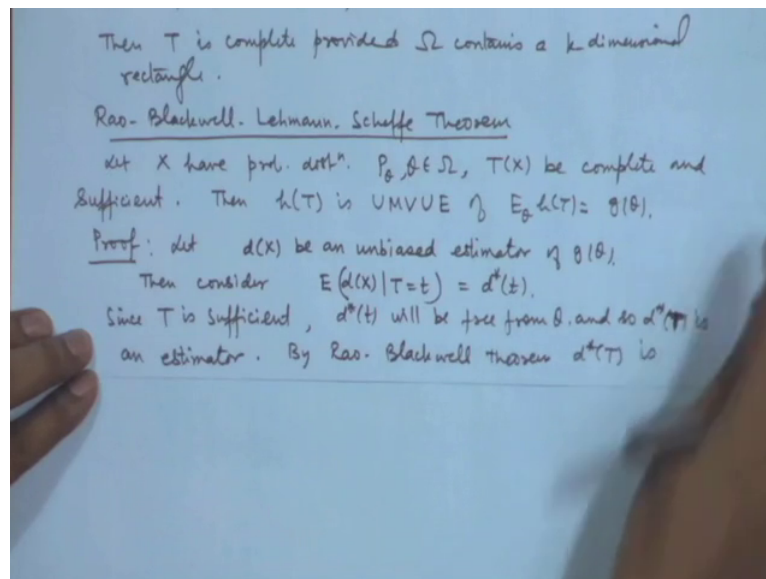 Then T is complete provided Ω contains a k dimensional
rectangle.
Rao-Blackwell-Lehmann-Scheffe Theorem
Let X have prob. distⁿ. P_θ, θ ∈ Ω, T(X) be complete and
Sufficient. Then h(T) is UMVUE of E_θ h(T) = g(θ).
Proof: Let d(X) be an unbiased estimator of g(θ).
Then consider E(d(X)|T=t) = d*(t).
Since T is sufficient, d*(t) will be free from θ. and so d*(T) is
an estimator. By Rao-Blackwell theorem d*(T) is